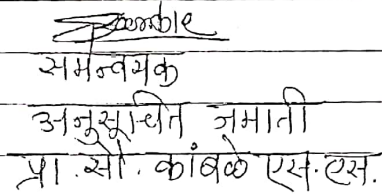 समन्वयक
अनुसूचित जमाती
प्रा. सौ. कांबळे एस. एस.